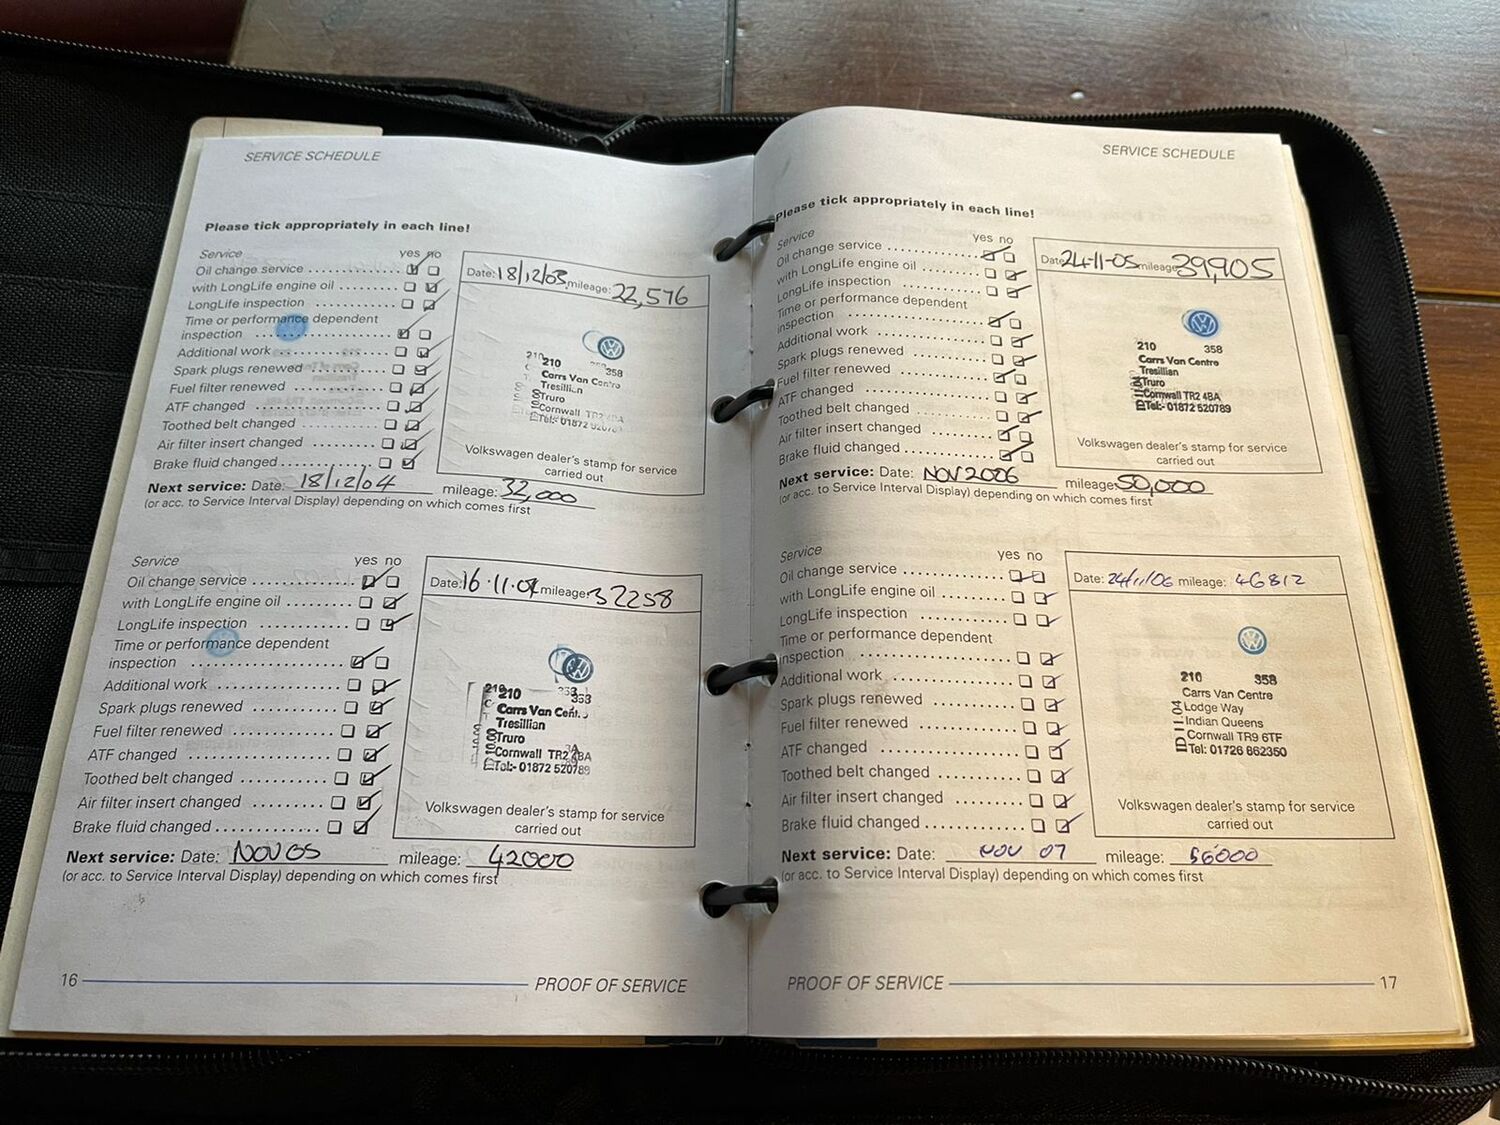 SERVICE SCHEDULE
Please tick appropriately in each line!
Service yes no
Oil change service
with LongLife engine oil
LongLife inspection
Time or performance dependent
inspection
Additional work
Spark plugs renewed
Fuel filter renewed
ATF changed
Toothed belt changed
Air filter insert changed
Brake fluid changed
Date: 18/12/03 mileage: 22,576
210 358
Carrs Van Centre
Tresillian
Truro
Cornwall TR2 4BA
Tel:- 01872 520789
Volkswagen dealer's stamp for service
carried out
Next service: Date: 18/12/04 mileage: 32,000
(or acc. to Service Interval Display) depending on which comes first
Service yes no
Oil change service
with LongLife engine oil
LongLife inspection
Time or performance dependent
inspection
Additional work
Spark plugs renewed
Fuel filter renewed
ATF changed
Toothed belt changed
Air filter insert changed
Brake fluid changed
Date: 16.11.04 mileage: 32258
210 358
Carrs Van Cent
Tresillian
Truro
Cornwall TR2 4BA
Tel:- 01872 520789
Volkswagen dealer's stamp for service
carried out
Next service: Date: NOV 05 mileage: 42000
(or acc. to Service Interval Display) depending on which comes first
16 PROOF OF SERVICE
SERVICE SCHEDULE
Please tick appropriately in each line!
Service yes no
Oil change service
with LongLife engine oil
LongLife inspection
Time or performance dependent
inspection
Additional work
Spark plugs renewed
Fuel filter renewed
ATF changed
Toothed belt changed
Air filter insert changed
Brake fluid changed
Date 24-11-05 mileage 39,905
210 358
Carrs Van Centre
Tresillian
Truro
Cornwall TR2 4BA
Tel:- 01872 520789
Volkswagen dealer's stamp for service
carried out
Next service: Date: NOV 2006 mileage: 50,000
(or acc. to Service Interval Display) depending on which comes first
Service yes no
Oil change service
with LongLife engine oil
LongLife inspection
Time or performance dependent
inspection
Additional work
Spark plugs renewed
Fuel filter renewed
ATF changed
Toothed belt changed
Air filter insert changed
Brake fluid changed
Date: 24/11/06 mileage: 46812
210 358
Carrs Van Centre
Lodge Way
Indian Queens
Cornwall TR9 6TF
Tel: 01726 862350
Volkswagen dealer's stamp for service
carried out
Next service: Date: NOV 07 mileage: 56000
(or acc. to Service Interval Display) depending on which comes first
PROOF OF SERVICE 17